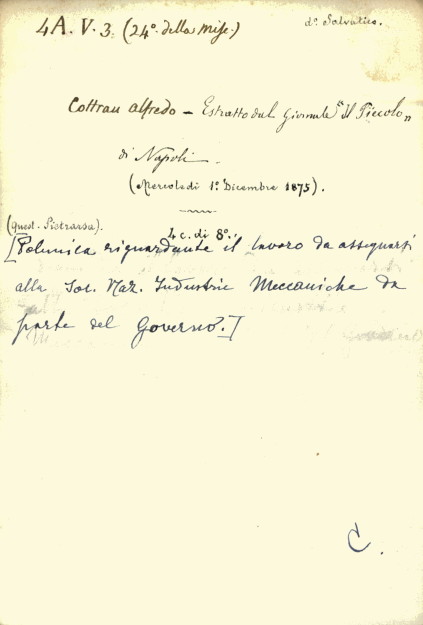 4A. V. 3. (24º. della Misc.)
dº. Salvatico.
Cottrau Alfredo — Estratto dal Giornale "Il Piccolo"
di Napoli.
(Mercoledì 1º. Dicembre 1875).
(quest. Pietrarsa).
4 c. di 8º.
[Polemica riguardante il lavoro da assegnarsi
alla Soc. Naz. Industrie Meccaniche da
parte del Governo.]
C.